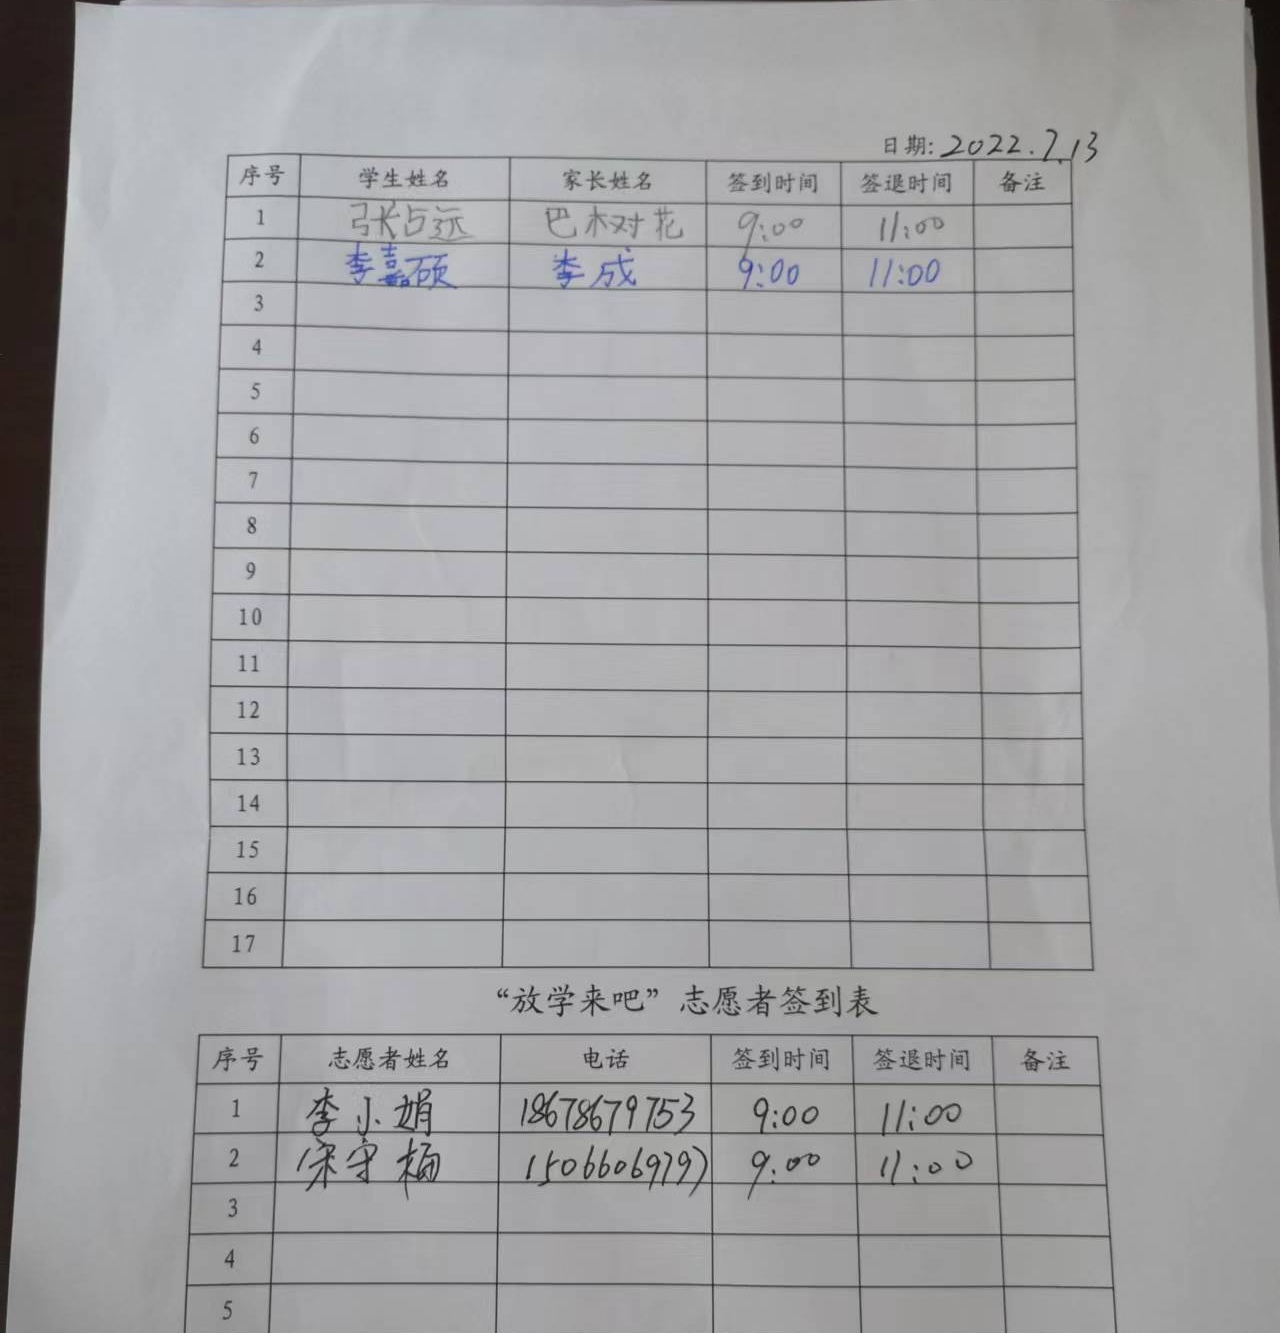 日期: 2022.7.13
序号 学生姓名 家长姓名 签到时间 签退时间 备注
1 张占远 巴木对花 9:00 11:00
2 李嘉硕 李成 9:00 11:00
3
4
5
6
7
8
9
10
11
12
13
14
15
16
17
“放学来吧”志愿者签到表
序号 志愿者姓名 电话 签到时间 签退时间 备注
1 李小娟 18678679753 9:00 11:00
2 宋守梅 15066069797 9:00 11:00
3
4
5